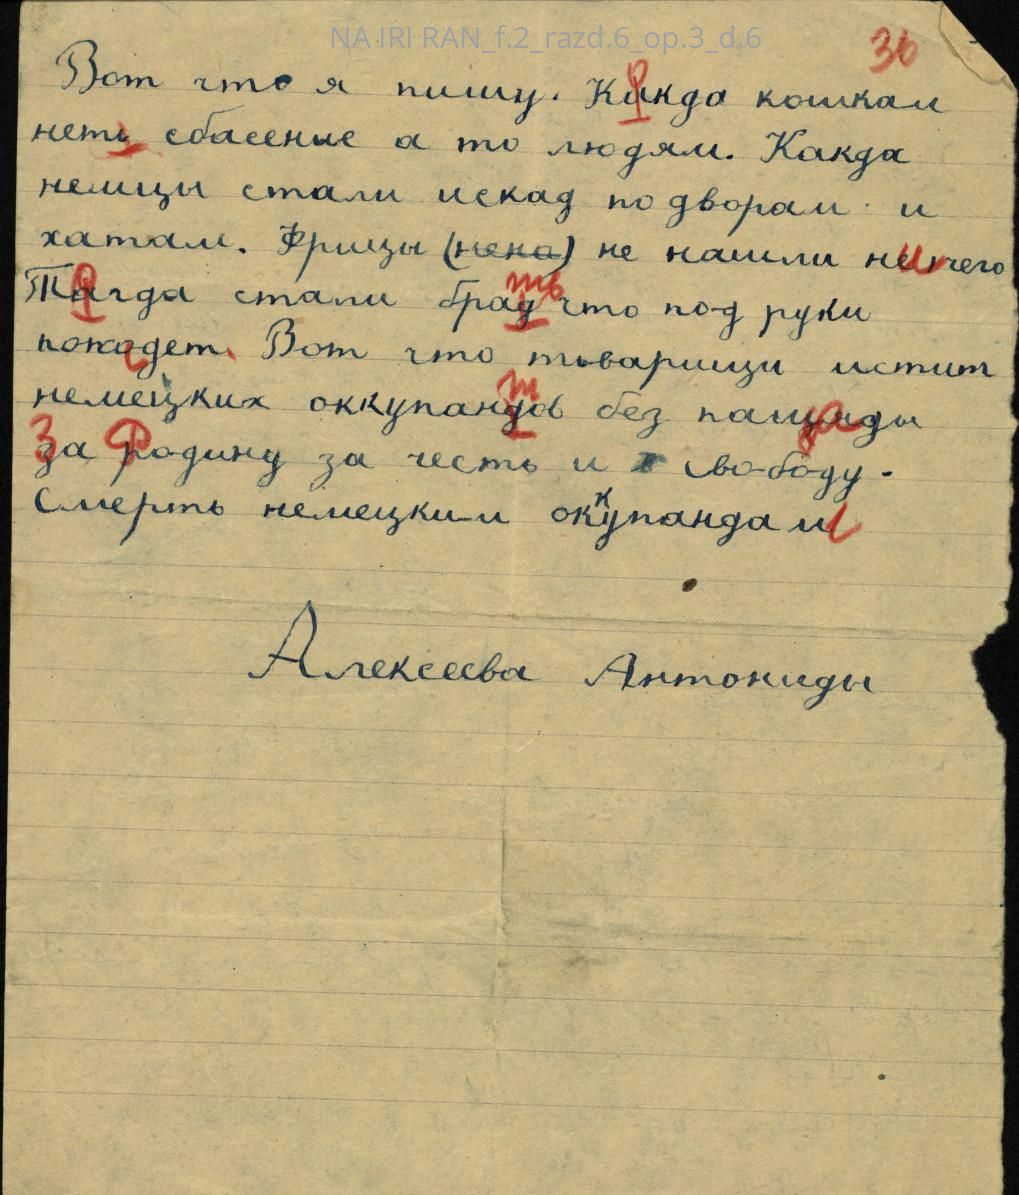 NA IRI RAN_f.2_razd.6_op.3_d.6
36
Вот что я пишу. Какда кошкам
неть сбасение а то людям. Какда
немцы стали искад по дворам и
хатам. Фрицы (нена) не нашли нечего
Тагда стали брад что под руки
поподет. Вот что товарищи мстит
немецких оккупандов без пащады
за родину за честь и свободу.
Смерть немецким оккупандам
Алексеева Антониды